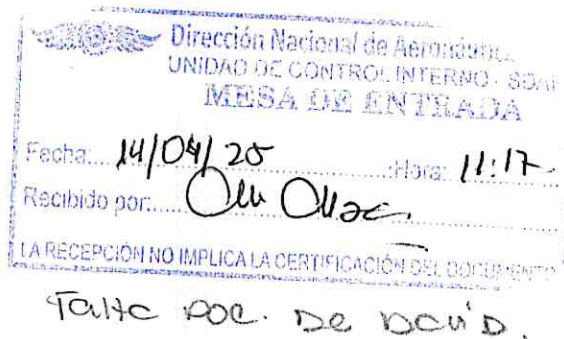 Dirección Nacional de
UNIDAD DE CONTROL INTERNO -
MESA DE ENTRADA
Fecha:... 14/04/25 Hora: 11:17
Recibido por:......
LA RECEPCIÓN NO IMPLICA LA CERTIFICACIÓN DEL DOCUMENTO
Falta DOC. De